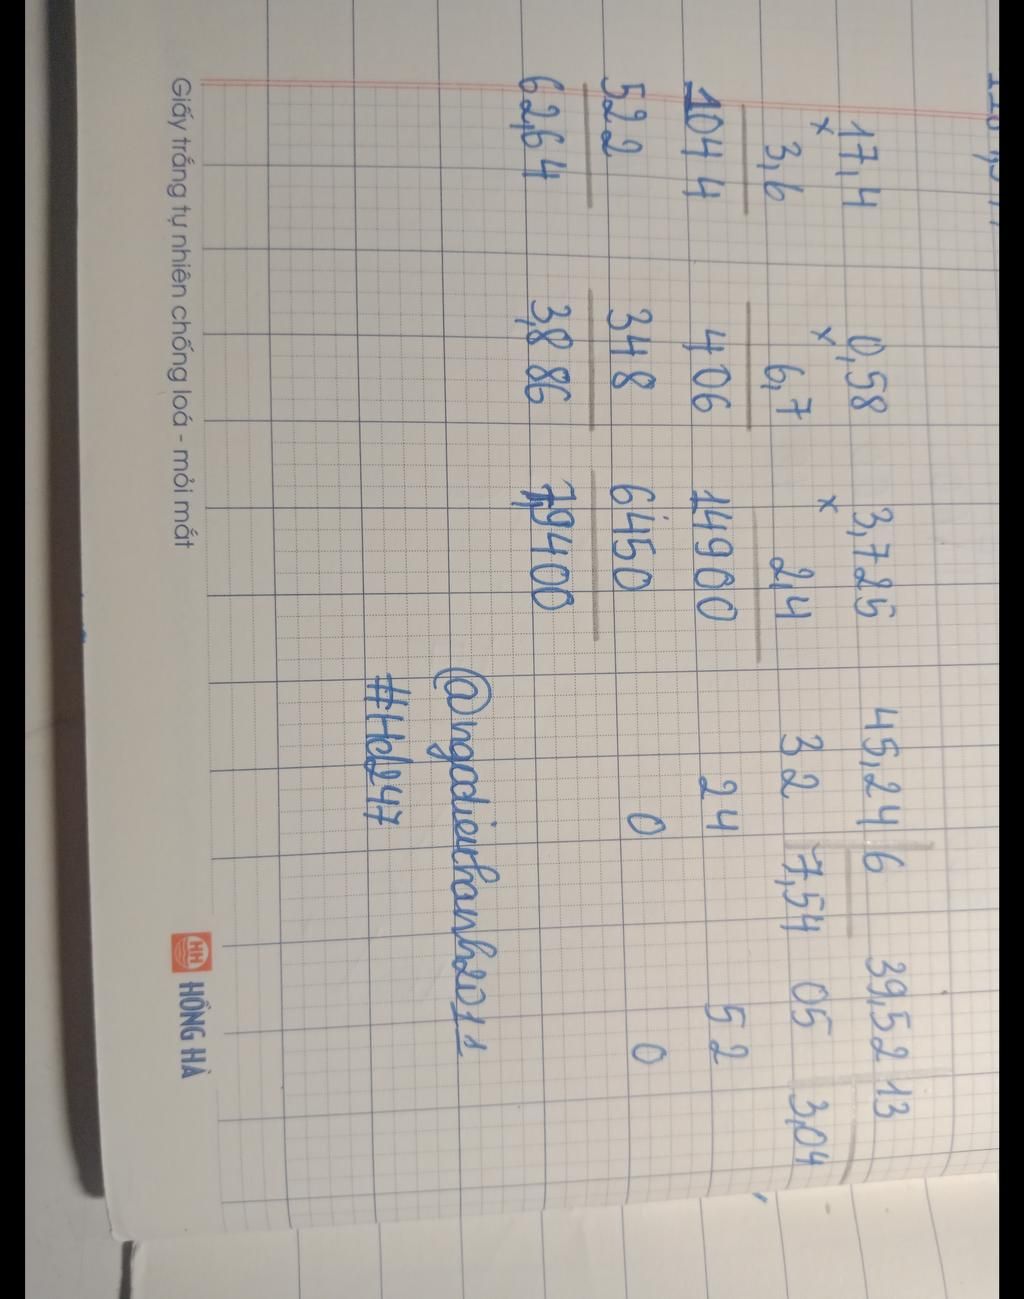 17,4 0,58 3,725 45,24 6 39,52 13
x 3,6 x 6,7 x 2,4 32 7,54 05 3,04
1044 406 14900 24 52
522 348 6450 0 0
62,64 3,886 7,9400
@ngocdieukhanh2011
#Hd247
Giấy trắng tự nhiên chống loá - mỏi mắt HH HỒNG HÀ